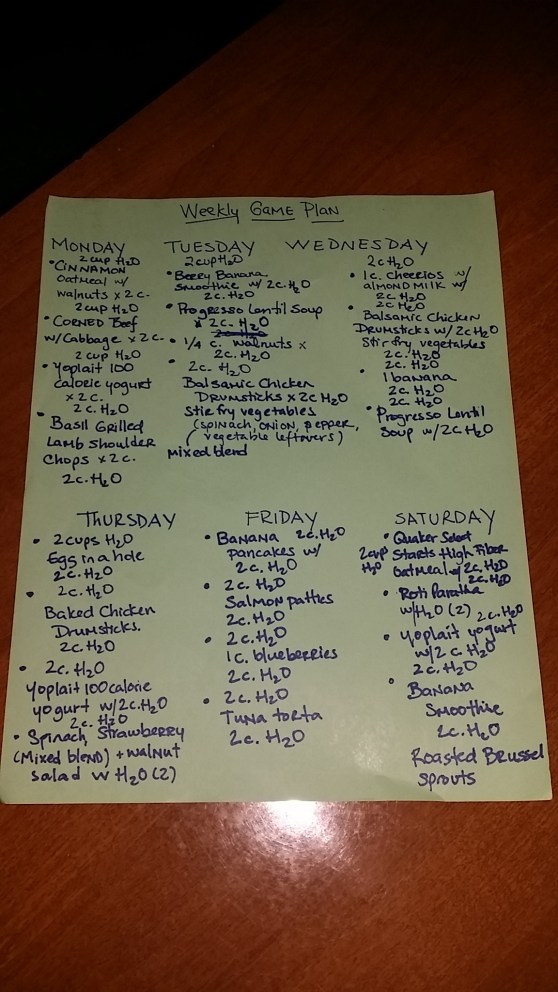 Weekly GAME PLAN
MONDAY
2 cup H2O
• CINNAMON
Oatmeal w/
walnuts x 2 c.
2 cup H2O
• CORNED Beef
w/Cabbage x 2c.
2 cup H2O
• Yoplait 100
calorie yogurt
x 2 c.
2 c. H2O
• Basil Grilled
Lamb shoulder
Chops x 2c.
2 c. H2O
TUESDAY
2 cup H2O
• Berry Banana
Smoothie w/ 2c. H2O
2c. H2O
• Progresso Lentil Soup
x 2c. H2O
• 1/4 c. walnuts x
2c. H2O
• 2c. H2O
Balsamic Chicken
DRUMSTICKS x 2c H2O
Stir fry vegetables
(spinach, onion, pepper,
vegetable leftovers)
Mixed blend
WEDNESDAY
2 c H2O
• 1c. Cheerios w/
almond MILK w/
2c H2O
2c H2O
• Balsamic Chicken
DRUMSTICKS w/ 2c H2O
Stir fry vegetables
2c. H2O
2c. H2O
• 1 banana
2c. H2O
2c. H2O
• Progresso Lentil
Soup w/ 2c. H2O
THURSDAY
• 2 cups H2O
Egg in a hole
2c. H2O
• 2c. H2O
Baked Chicken
Drumsticks.
2c. H2O
• 2c. H2O
Yoplait 100 calorie
yogurt w/ 2c. H2O
2c. H2O
• Spinach, Strawberry
(Mixed blend) + walnut
salad w H2O (2)
FRIDAY
• BANANA 2c. H2O
pancakes w/
2c. H2O
• 2c. H2O
Salmon patties
2c. H2O
• 2c. H2O
1c. blueberries
2c. H2O
• 2c. H2O
Tuna torta
2c. H2O
SATURDAY
• Quaker Select
2 cup Starts High Fiber
H2O Oatmeal w/ 2c. H2O
2c. H2O
• Roti Paratha
w/H2O (2) 2c. H2O
• Yoplait yogurt
w/ 2 c. H2O
2c. H2O
• BANANA
Smoothie
2c. H2O
Roasted Brussel
sprouts